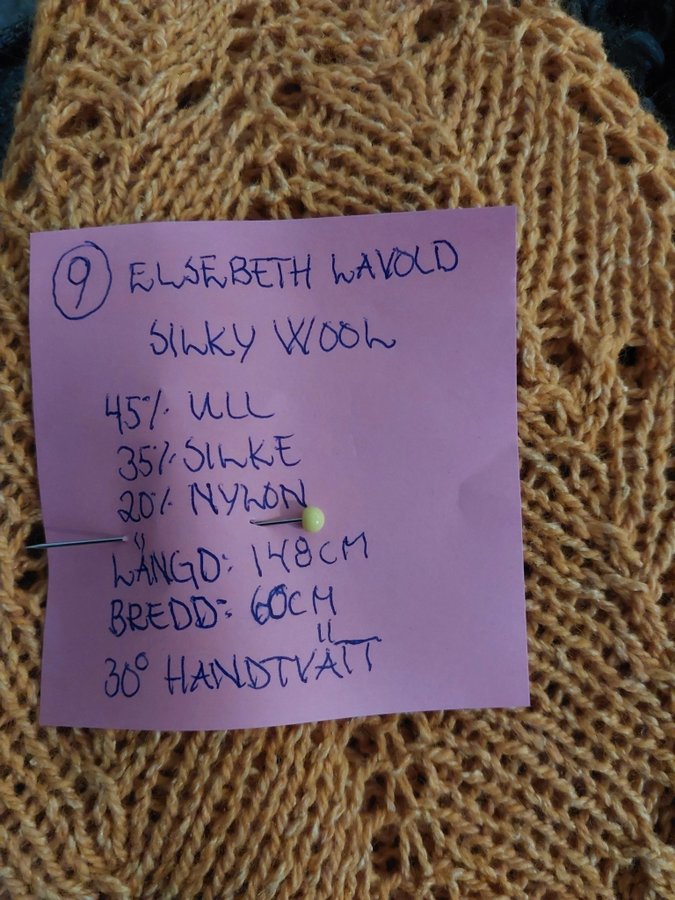 9 ELSEBETH LAVOLD
SILKY WOOL
45% ULL
35% SILKE
20% NYLON
LÄNGD: 148CM
BREDD: 60CM
30° HANDTVÄTT